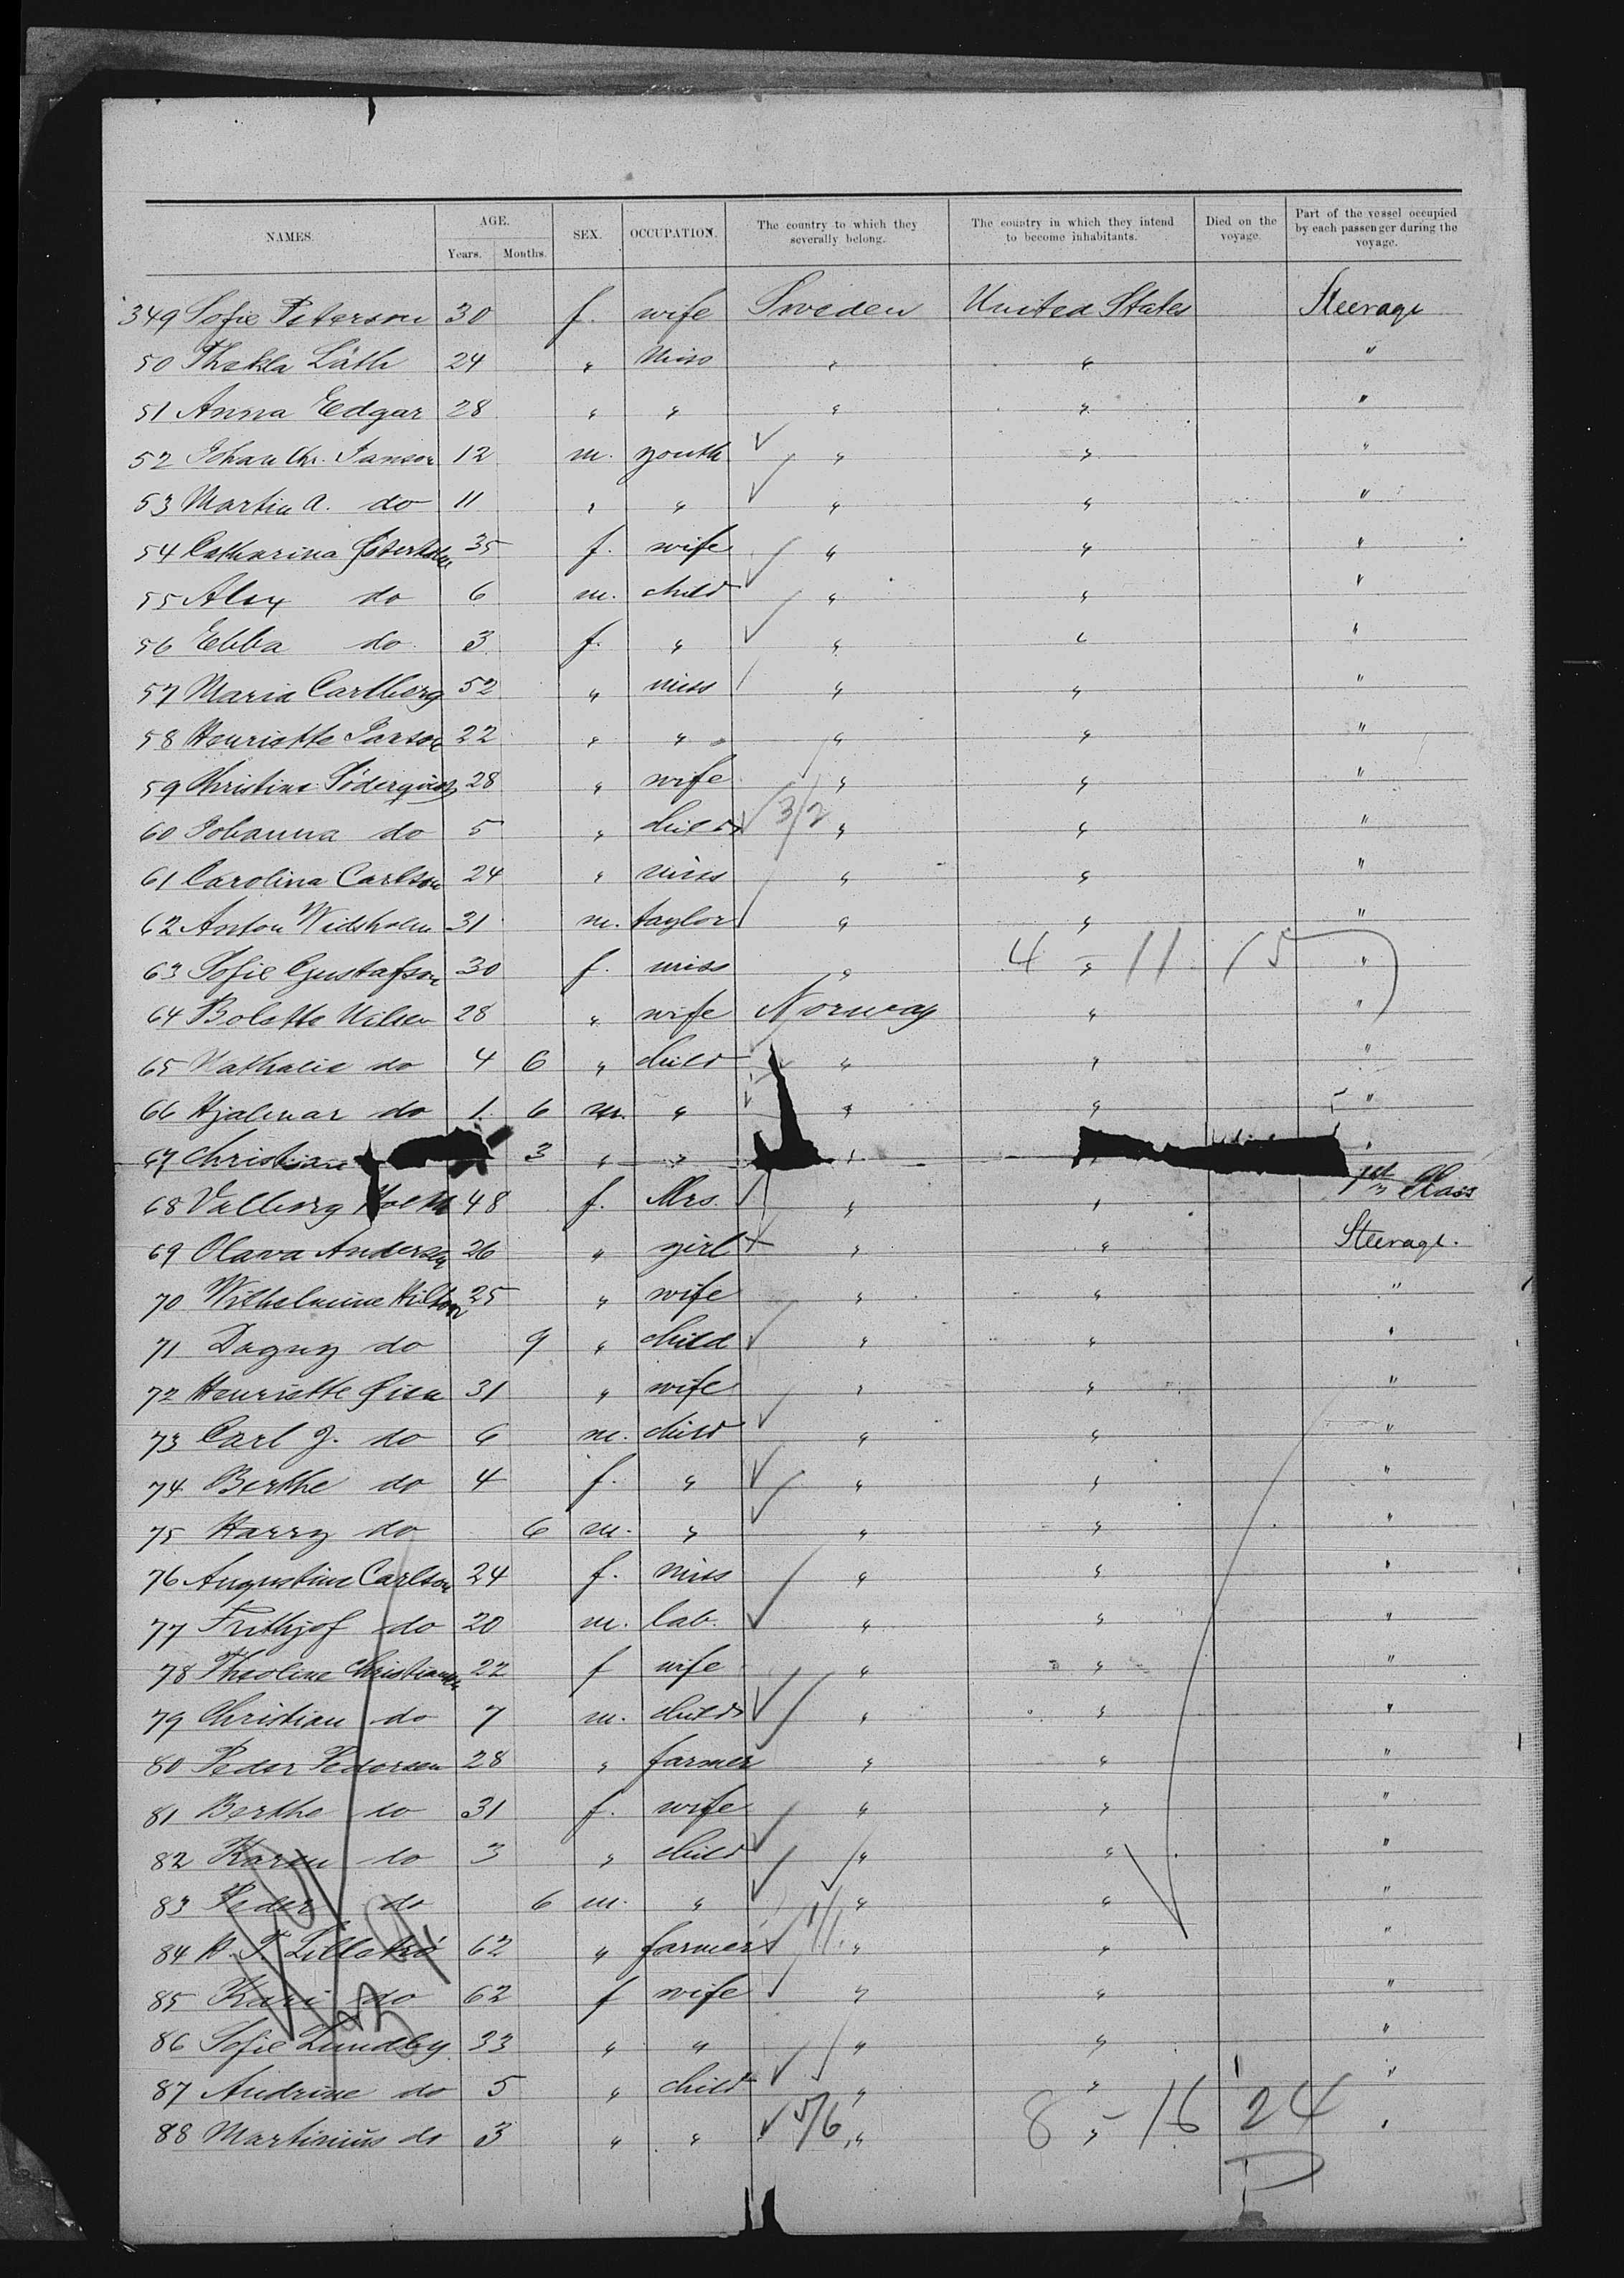 NAMES. AGE. SEX. OCCUPATION. The country to which they severally belong. The country in which they intend to become inhabitants. Died on the voyage. Part of the vessel occupied by each passenger during the voyage.
Years. Months.
349 Sofie Peterson 30 f. wife Sweden United States Steerage
50 Thekla Läth 24 " Miss " " "
51 Anna Edgar 28 " " " " "
52 Johan Chr. Janson 12 m. youth " " "
53 Martin A. do 11 " " " " "
54 Catharina 35 f. wife " " "
55 Alex do 6 m. child " " "
56 Ebba do 3 f. " " " "
57 Maria Carlberg 52 " miss " " "
58 Henriette Larson 22 " " " " "
59 Christine Söderqvist 28 " wife " " "
60 Johanna do 5 " child 3/2 " " "
61 Carolina Carlson 24 " miss " " "
62 Anton Widsholm 31 m. taylor " " "
63 Sofie Gustafson 30 f. miss " 4 - 11 15 "
64 Bolette Nilsen 28 " wife Norway " "
65 Nathalie do 4 6 " child " " "
66 Hjalmar do 1 6 m. " " " "
67 Christian 3 " " " "
68 Valborg Holth 48 f. Mrs. " " 1st Class
69 Olava Andersen 26 " girl " " Steerage.
70 Wilhelmine Hilson 25 " wife " " "
71 Dagny do 9 " child " " "
72 Henriette 31 " wife " " "
73 Carl J. do 6 m. child " " "
74 Berthe do 4 f. " " " "
75 Harry do 6 m. " " " "
76 Augustine Carlson 24 f. miss " " "
77 Frithjof do 20 m. lab. " " "
78 Theoline Christiansen 22 f wife " " "
79 Christian do 7 m. child " " "
80 Peder Pedersen 28 " farmer " " "
81 Berthe do 31 f. wife " " "
82 Karen do 3 " child " " "
83 Peder do 6 m. " " " "
84 A. P. Lillekrö 62 " farmer 1/1 " " "
85 Kari do 62 f wife " " "
86 Sofie Lundby 33 " " " " "
87 Andrine do 5 " child " " "
88 Martinius do 3 " " 5/6 " 8 - 16 24 "